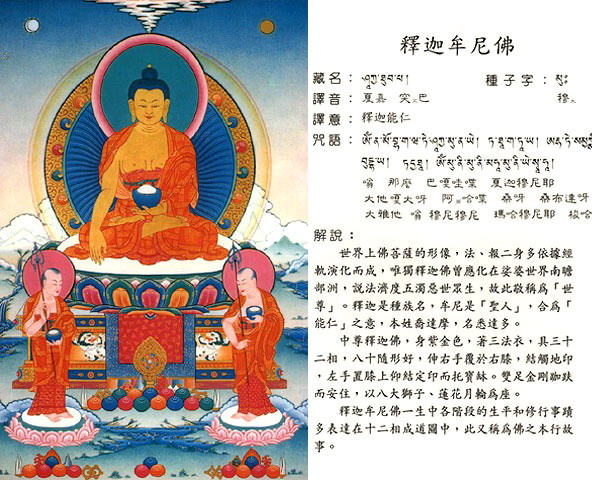 釋迦牟尼佛
藏名： ཤཱཀྱ་ཐུབ་པ། 種子字：
譯音： 夏嘉 突巴 穆
譯意： 釋迦能仁
咒語： ན་མོ་བྷ་ག་ཝ་ཏེ་ཤཱཀྱ་མུ་ན་ཡེ།
མུ་ནི་མུ་ནི་མ་ཧཱ་མུ་ནི་ཡེ་སྭཱ་ཧཱ།
嗡 那麼 巴嘎哇喋 夏迦穆尼耶
大他嘎大呀 阿哈喋 桑呀 桑布達呀
大雅他 嗡 穆尼穆尼 瑪哈穆尼耶
解說：
世界上佛菩薩的形像，法、報二身多依據經
軌演化而成，唯獨釋迦佛曾應化在娑婆世界南瞻
部洲，說法濟度五濁惡世眾生，故此敬稱爲「世
尊」。釋迦是種族名，牟尼是「聖人」，合爲「
能仁」之意，本姓喬達摩，名悉達多。
中尊釋迦佛，身紫金色，著三法衣，具三十
二相，八十隨形好，伸右手覆於右膝，結觸地印
，左手置膝上仰結定印而托寶缽。雙足金剛跏趺
而安住，以八大獅子、蓮花月輪爲座。
釋迦牟尼佛一生中各階段的生平和修行事蹟
多表達在十二相成道圖中，此又稱爲佛之本行故
事。